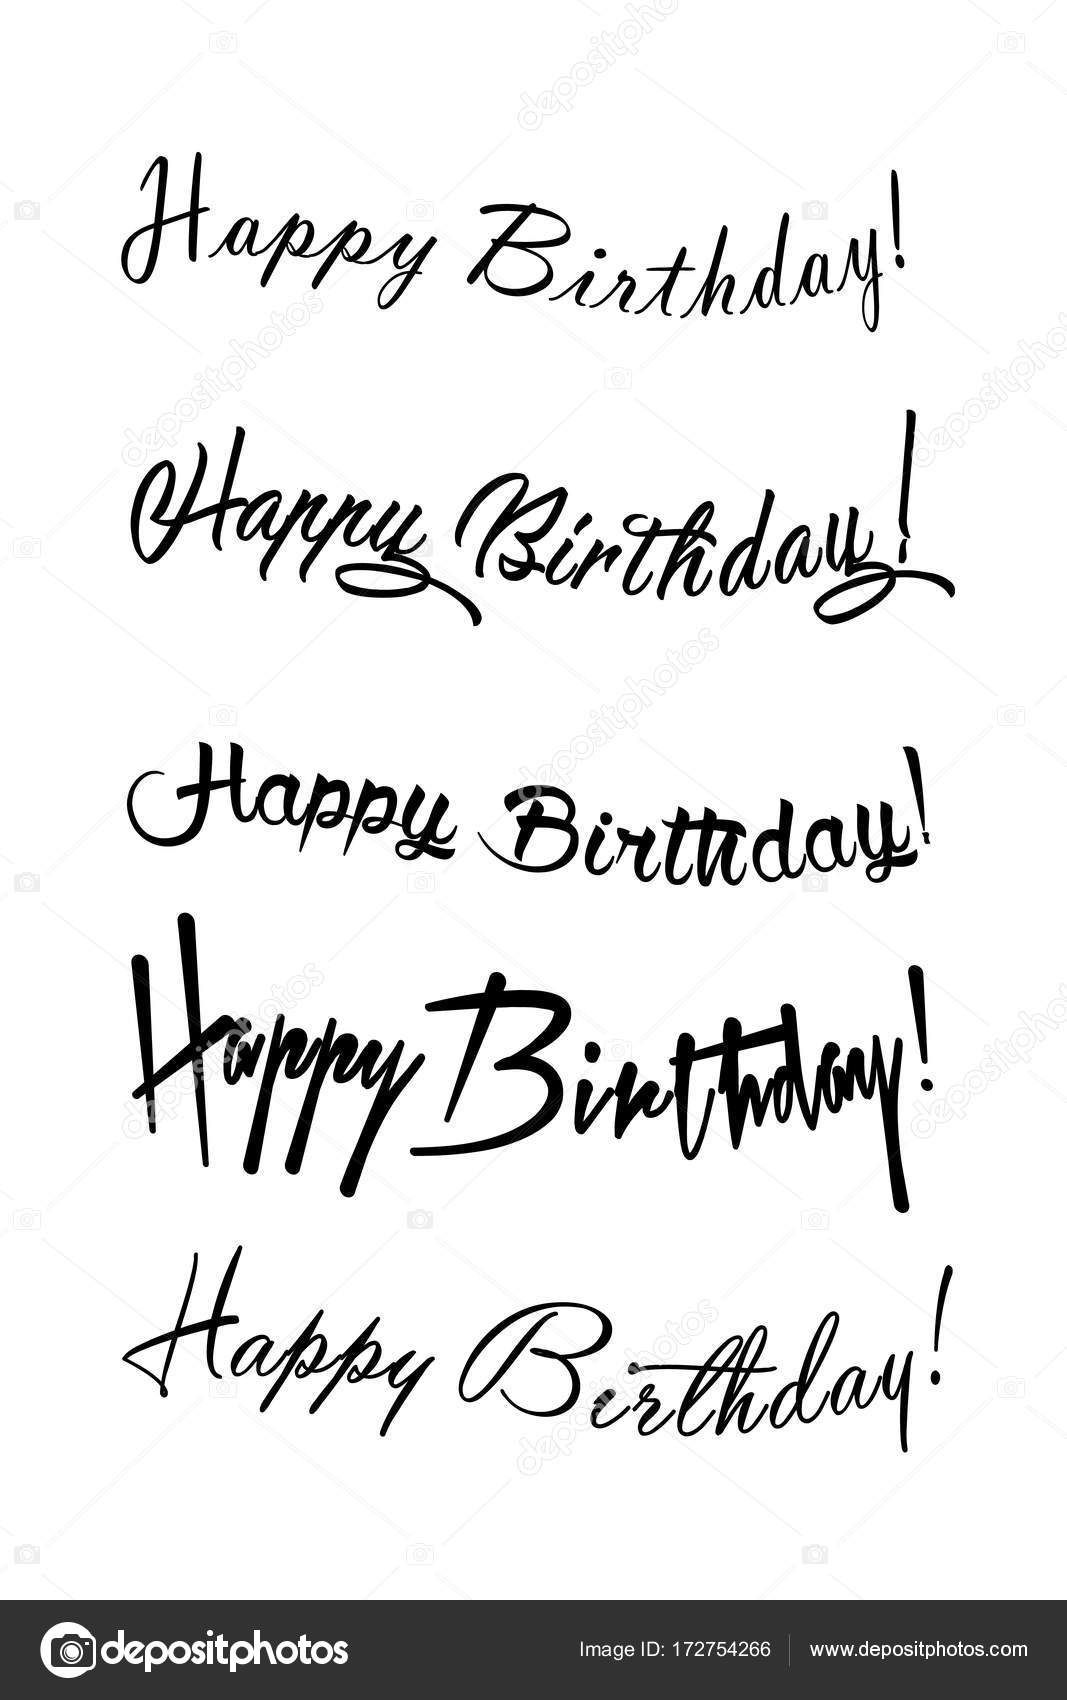 Happy Birthday!
Happy Birthday!
Happy Birthday!
Happy Birthday!
Happy Birthday!
depositphotos Image ID: 172754266 www.depositphotos.com